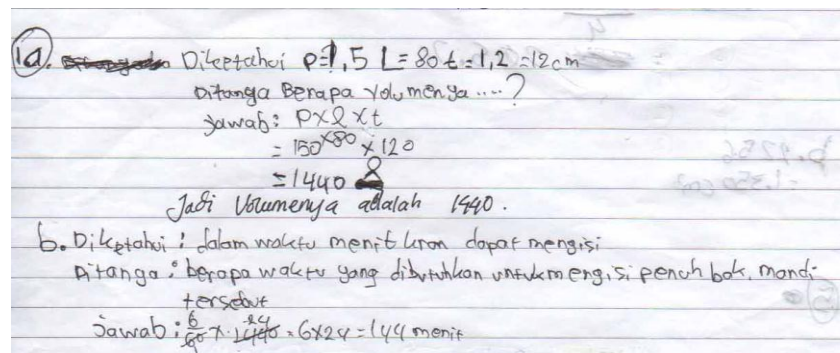 1a. Diketahui p=1,5 L=80 t=1,2=12cm
Ditanya Berapa Volumenya....?
Jawab: p×l×t
= 150×80×120
= 1440
Jadi Volumenya adalah 1440.
b. Diketahui : dalam waktu menit kran dapat mengisi
Ditanya : berapa waktu yang dibutuhkan untuk mengisi penuh bak mandi
tersebut
Jawab : 6/60 × 1440 24 = 6×24 = 144 menit